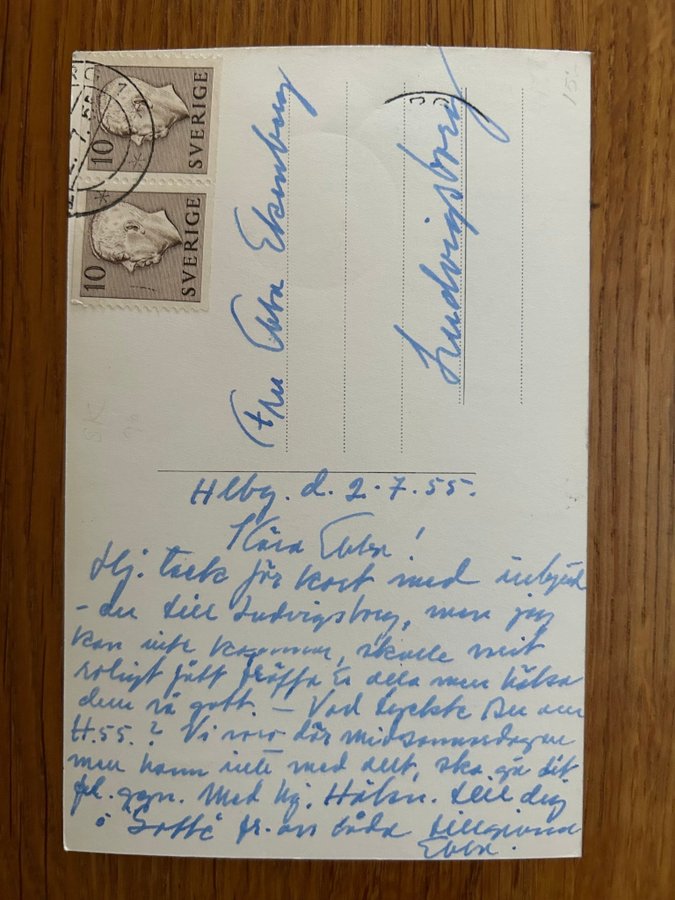 10
SVERIGE
10
SVERIGE
Fru Ebba Ekenberg
Ludvigsborg
Hlbg. d. 2.7.55.
Kära Ebba!
Hj. tack för kort med inbjud
-du till Ludvigsborg, men jag
kan inte komma, skulle varit
roligt fått träffa Er alla men hälsa
dem så gott. – Vad tyckte Du om
H.55.? Vi voro där midsommardagen
men hann inte med allt, ska gå dit
fl. ggn. Med hj. Hälsn. till dig
o Gotte fr. oss båda tillgivna
Ebba.